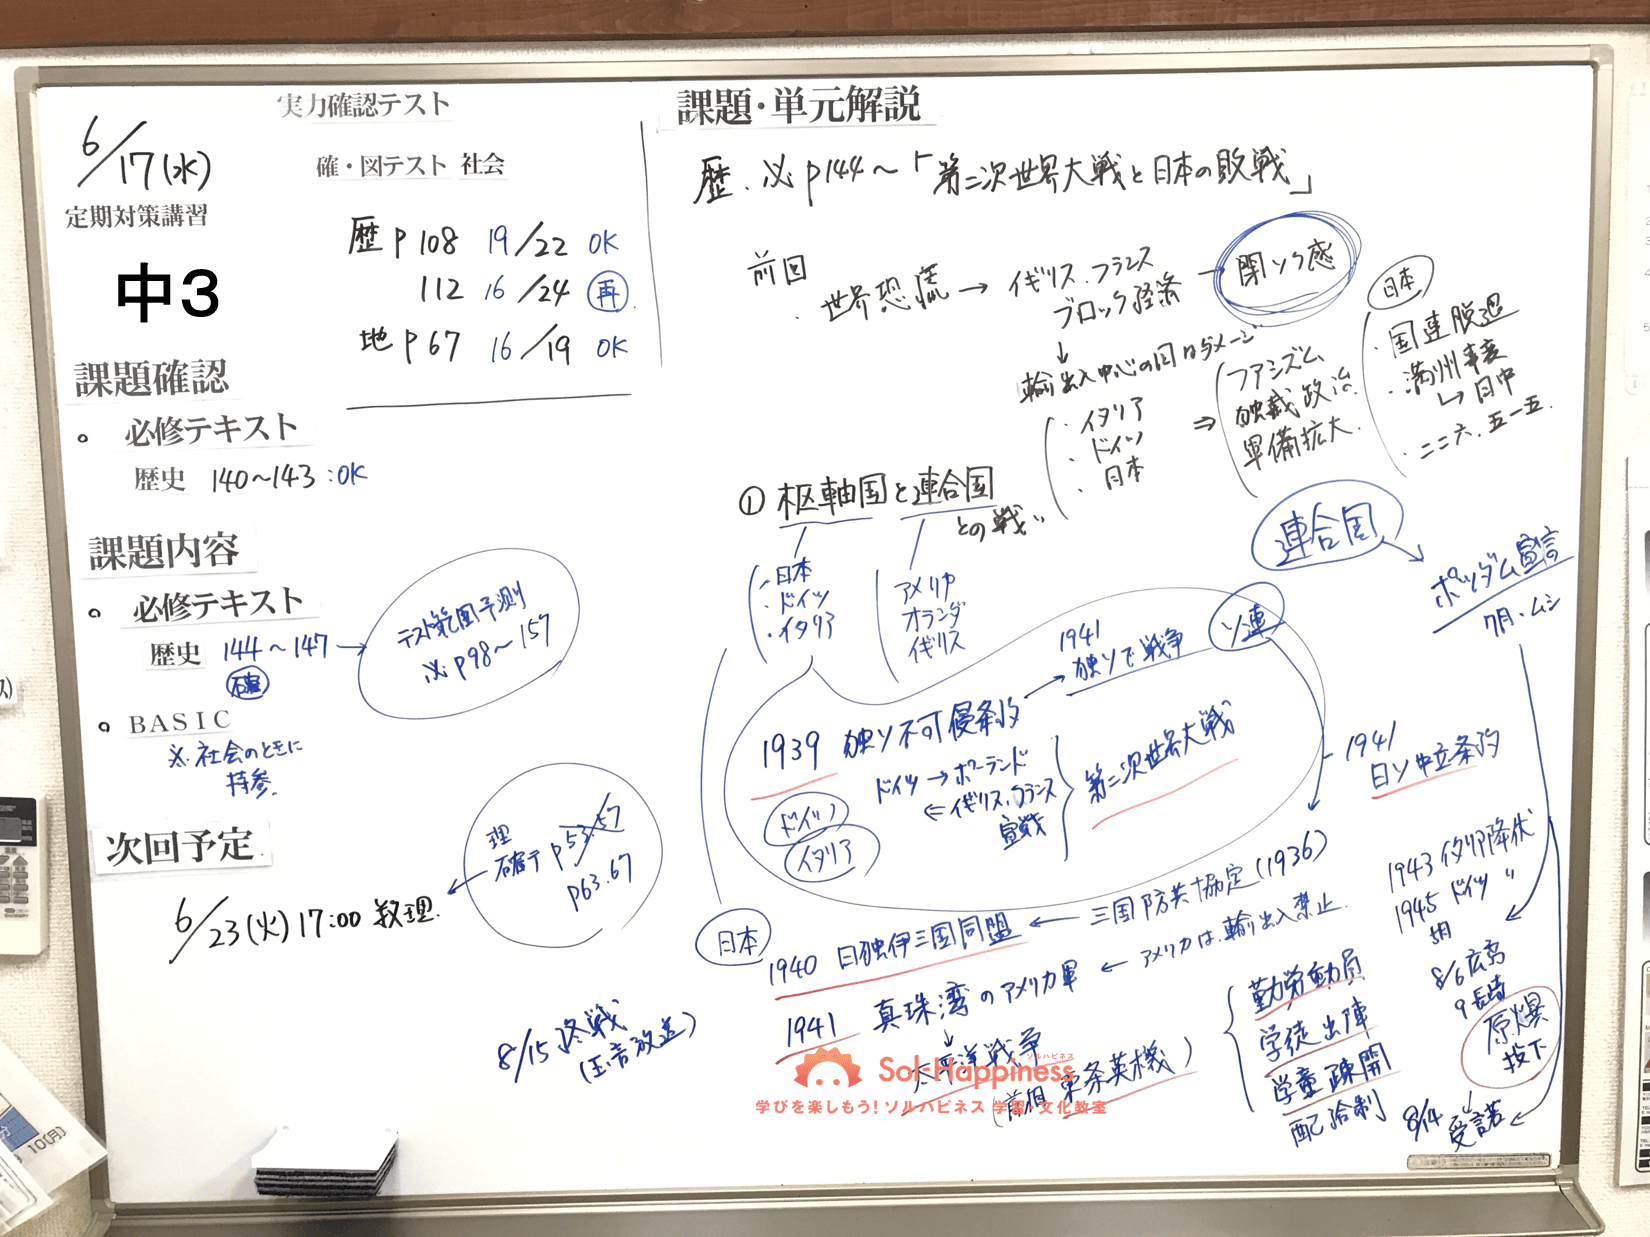 6/17(水)
定期対策講習
中3
実力確認テスト
確・図テスト 社会
歴 P108 19/22 OK
112 16/24 再
地 P67 16/19 OK
課題確認
。必修テキスト
歴史 140~143:OK
課題内容
。必修テキスト
歴史 144~147→
確
テスト範囲予測
必 P98~157
。BASIC
※社会のときに
持参
次回予定
6/23(火)17:00 数理
理
確テ P53.57
P63.67
課題・単元解説
歴.必 P144~「第二次世界大戦と日本の敗戦」
前回
・世界恐慌→イギリス.フランス
ブロック経済
→閉ソク感
↓
輸出入中心の国はダメージ
・イタリア
・ドイツ
・日本
⇒
ファシズム
独裁政治
軍備拡大
日本
・国連脱退
・満州事変
↳日中
・二二六.五一五.
①枢軸国と連合国
との戦い
・日本
・ドイツ
・イタリア
アメリカ
オランダ
イギリス
連合国
ポツダム宣言
7月・ムシ
ソ連
1941
独ソで戦争
1939 独ソ不可侵条約
ドイツ→ポーランド
←イギリス.フランス
宣戦
第二次世界大戦
ドイツ
イタリア
1941
日ソ中立条約
1943 イタリア降伏
1945 ドイツ 〃
5月
8/6広島
9長崎
原爆
投下
8/14 受諾
日本
1940 日独伊三国同盟 ← 三国防共協定(1936)
1941 真珠湾のアメリカ軍 ← アメリカは.輸出入禁止.
↓
太平洋戦争
(首相 東条英機)
勤労動員
学徒出陣
学童疎開
配給制
8/15 終戦
(玉音放送)
ソルハピネス
Sol-Happiness
学びを楽しもう!ソルハピネス 学習・文化教室
10(月)